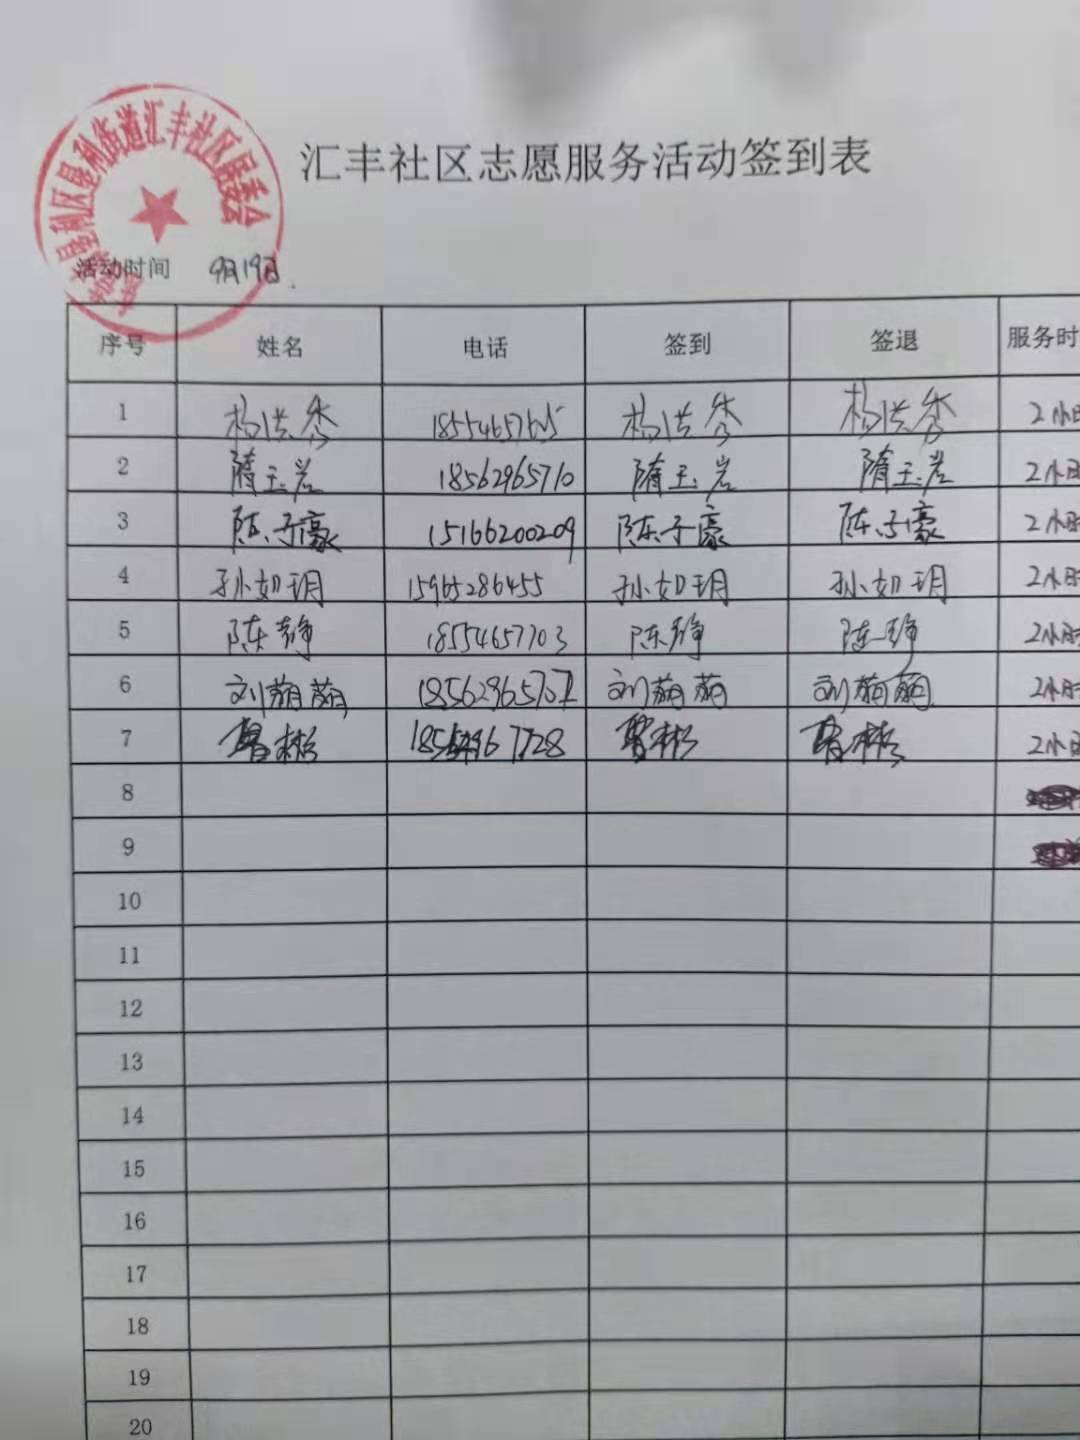 垦利区垦利街道汇丰社区居委会
汇丰社区志愿服务活动签到表
活动时间 9月19日.
序号 姓名 电话 签到 签退 服务时
1 杨洪秀 杨洪秀 杨洪秀 2小时
2 隋玉岩 18562965710 隋玉岩 隋玉岩 2小时
3 陈子豪 15166200209 陈子豪 陈子豪 2小时
4 孙如玥 15965286455 孙如玥 孙如玥 2小时
5 陈静 18554657703 陈静 陈静 2小时
6 刘萌萌 刘萌萌 刘萌萌 2小时
7 2小时
8
9
10
11
12
13
14
15
16
17
18
19
20